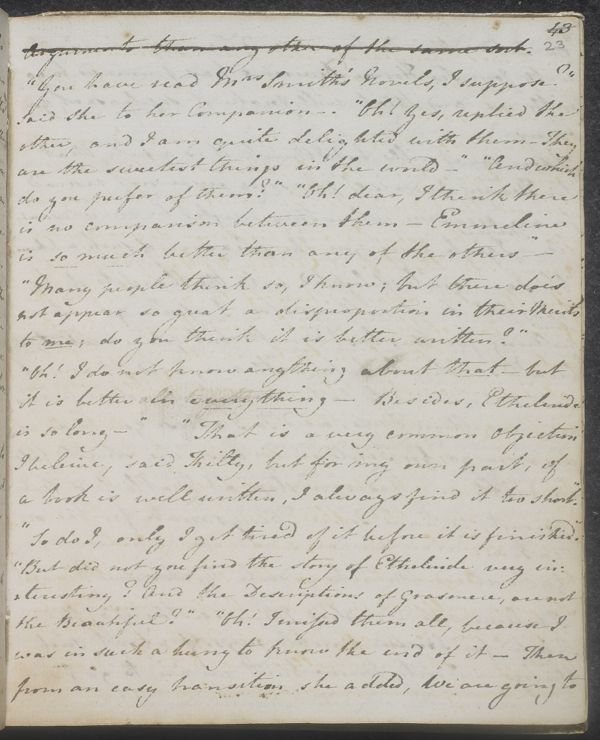 43
23
Arguments than any other of the same sort.
"You have read Mrs Smith's Novels, I suppose?"
said she to her Companion—. "Oh! Yes, replied the
other, and I am quite delighted with them— They
are the sweetest things in the world—" "And which
do you prefer of them?" "Oh! dear, I think there
is no comparison between them— Emmeline
is so much better than any of the others"—
"Many people think so, I know; but there does
not appear so great a disproportion in their Merits
to me; do you think it is better written?"
"Oh! I do not know anything about that— but
it is better in everything— Besides, Ethelinde
is so long—" "That is a very common Objection
I beleive, said Kitty, but for my own part, if
a book is well written, I always find it too short."
"So do I, only I get tired of it before it is finished."
"But did not you find the story of Ethelinde very in:
:teresting? And the Descriptions of Grasmere, are not
the Beautiful?" "Oh! I missed them all, because I
was in such a hurry to know the end of it— Then
from an easy transition she added, We are going to